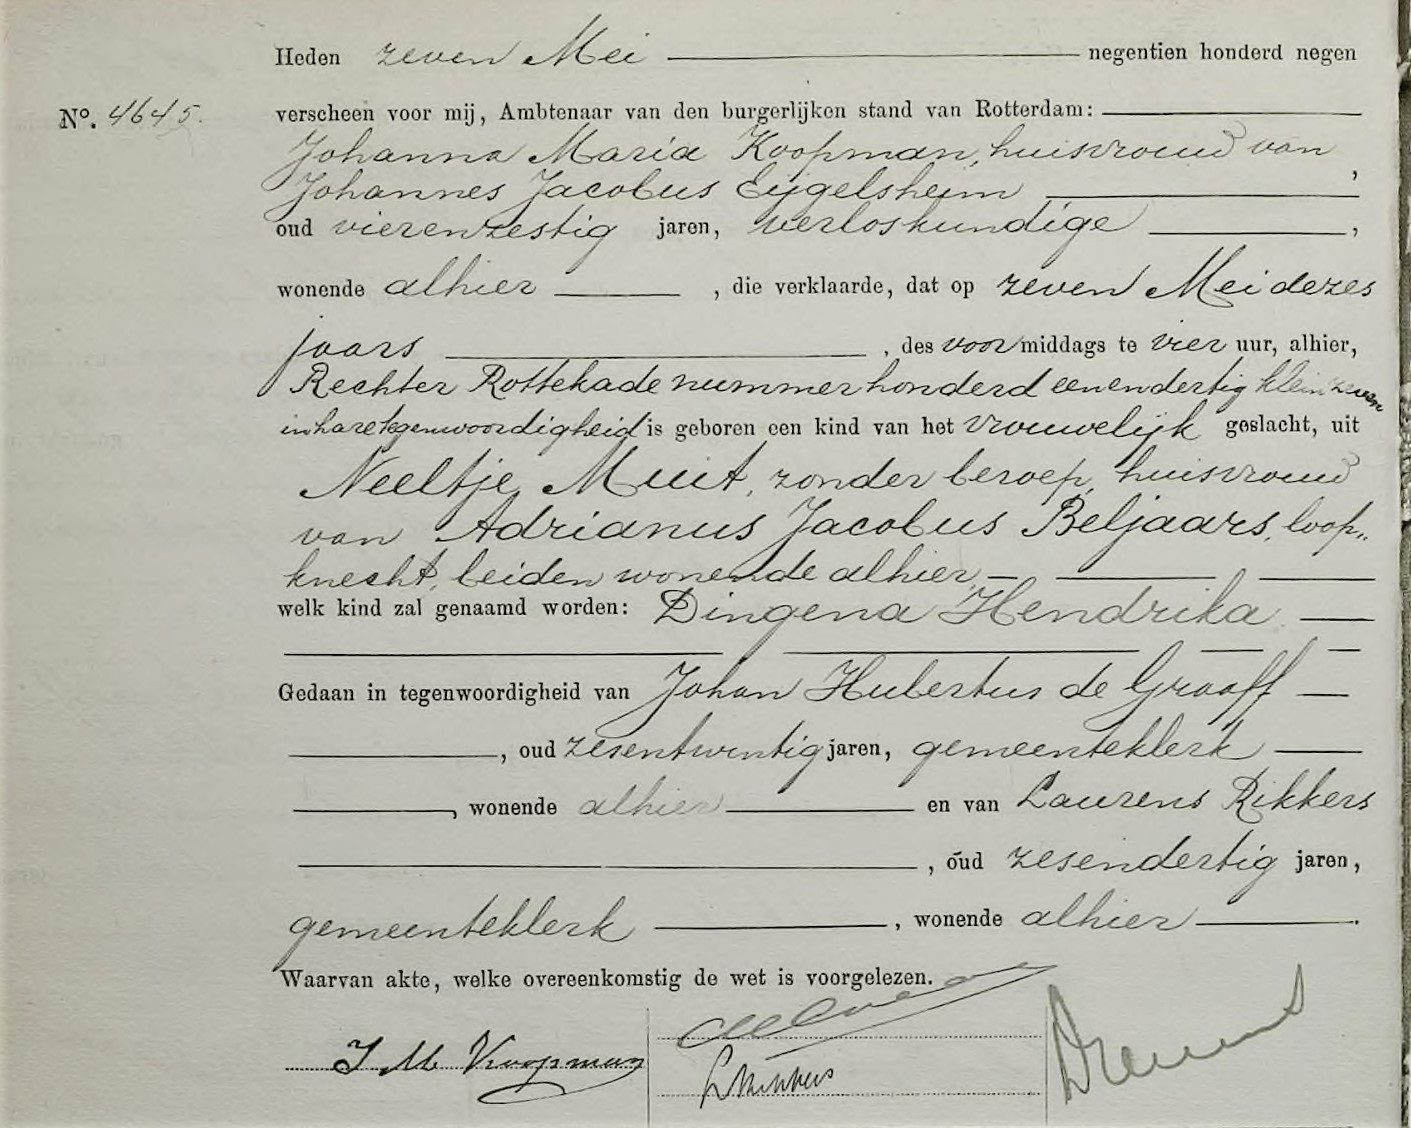 Heden zeven Mei negentien honderd negen
No. 4645. verscheen voor mij, Ambtenaar van den burgerlijken stand van Rotterdam:
Johanna Maria Koopman, huisvrouw van
Johannes Jacobus Eijgelsheim,
oud vierenzestig jaren, verloskundige,
wonende alhier, die verklaarde, dat op zeven Mei dezes
jaars, des voormiddags te vier uur, alhier,
Rechter Rottekade nummer honderd eenendertig klein zeven
in hare tegenwoordigheid is geboren een kind van het vrouwelijk geslacht, uit
Neeltje Muit, zonder beroep, huisvrouw
van Adrianus Jacobus Beljaars, loop„
knecht, beiden wonende alhier,
welk kind zal genaamd worden: Dingena Hendrika.
Gedaan in tegenwoordigheid van Johan Hubertus de Graaff
, oud zesentwintig jaren, gemeenteklerk
, wonende alhier en van Laurens Rikkers
, oud zesendertig jaren,
gemeenteklerk, wonende alhier.
Waarvan akte, welke overeenkomstig de wet is voorgelezen.
J M Koopman
L Rikkers